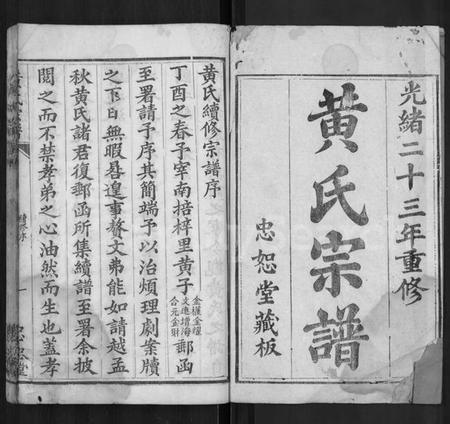 光緒二十三年重修
黃氏宗譜
忠恕堂藏板
黃氏續修宗譜序
丁酉之春予宰南掊梓里黃子金權金耀文進增海合元金財郵函
至署請予序其簡端予以治煩理劇案牘
之下日無暇晷遑事贅文弗能如請越孟
秋黃氏諸君復郵函所集續譜至署余披
閱之而不禁孝弟之心油然而生也蓋孝
續修序
一
忠恕堂